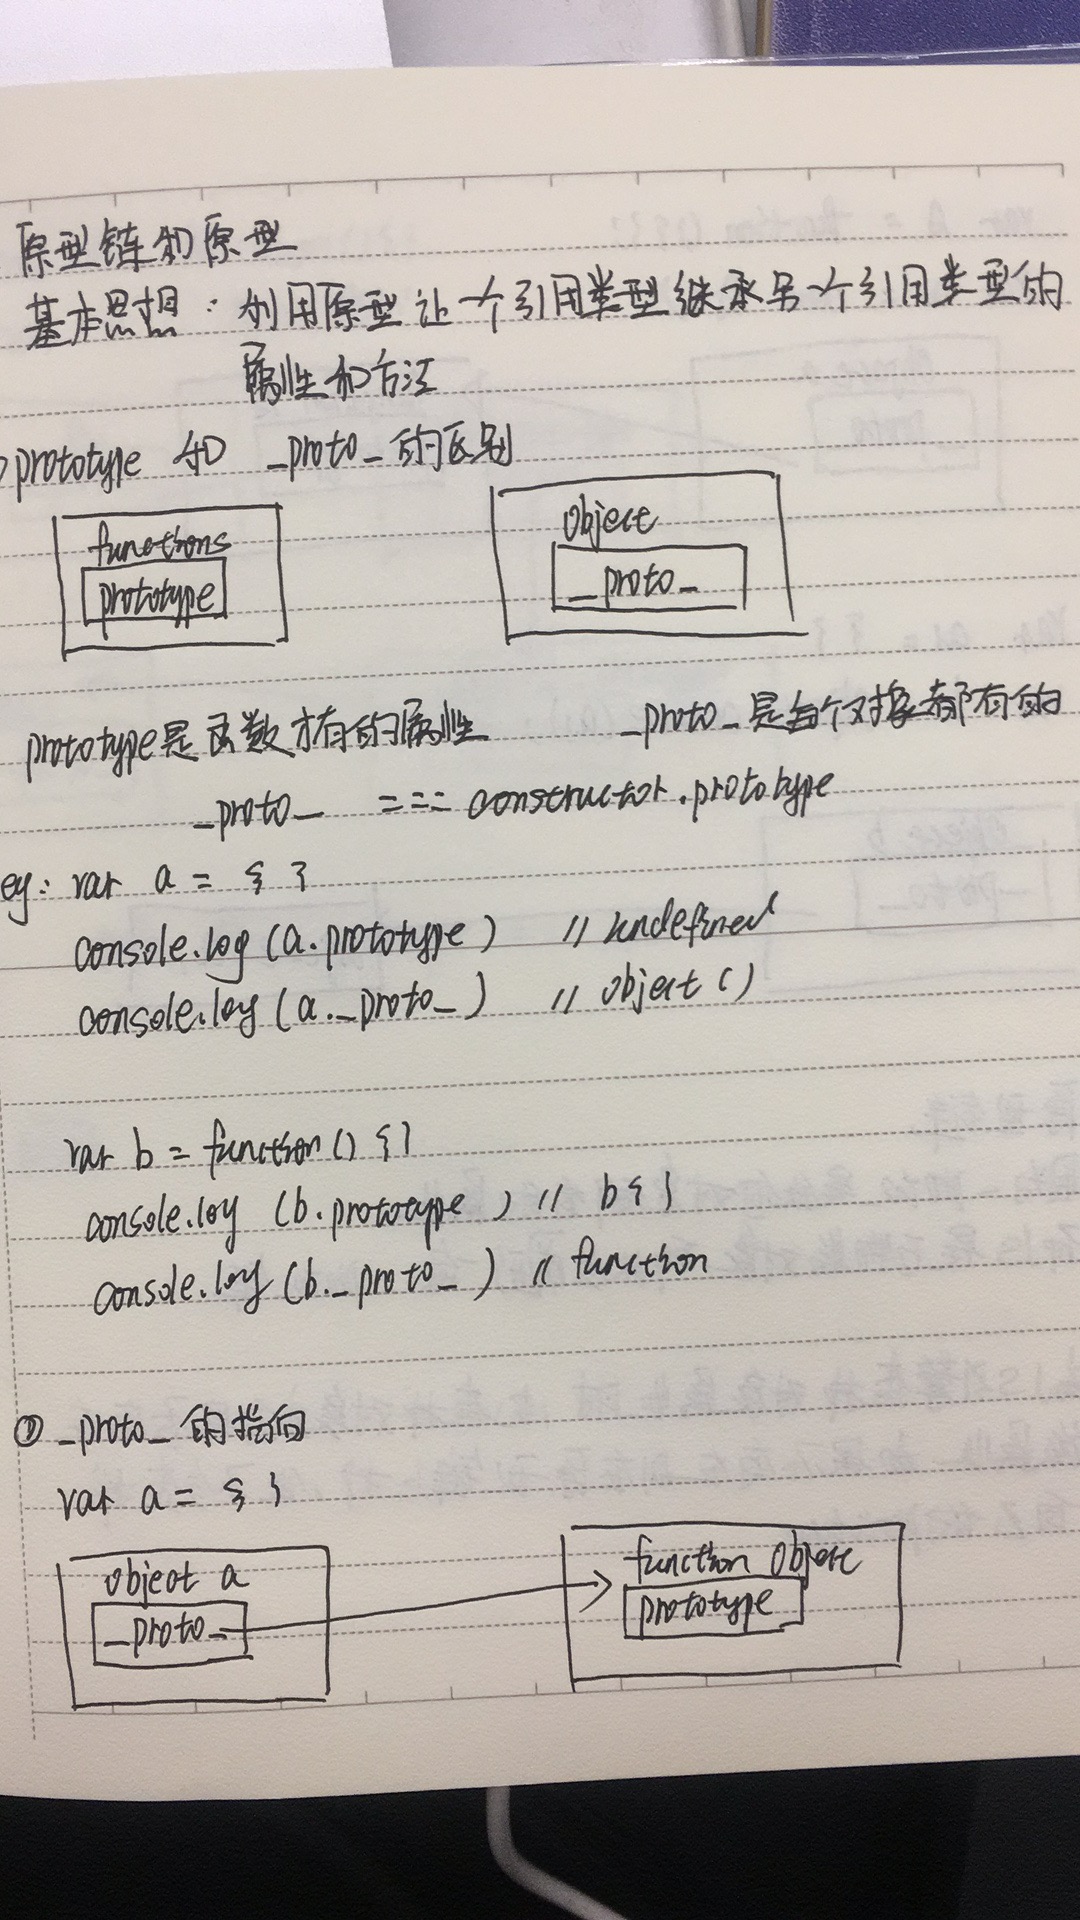 原型链和原型
基本思想：利用原型让一个引用类型继承另一个引用类型的
属性和方法
prototype 和 _proto_的区别
functions
prototype
object
_proto_
prototype是函数才有的属性 _proto_是每个对象都有的
_proto_ === constructor.prototype
eg: var a = { }
console.log (a.prototype) // undefined
console.log (a._proto_) // object ()
var b = function () { }
console.log (b.prototype) // b{ }
console.log (b._proto_) // function
② _proto_的指向
var a = { }
object a
_proto_
function object
prototype